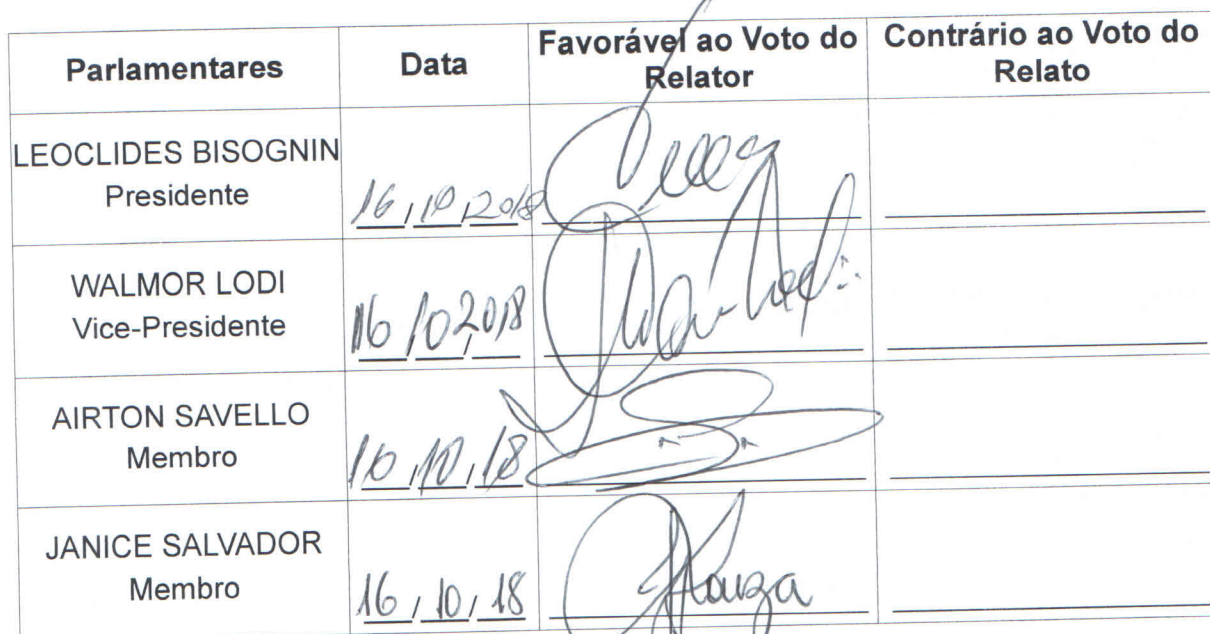 Parlamentares Data Favorável ao Voto do Relator Contrário ao Voto do Relato
LEOCLIDES BISOGNIN
Presidente
16,10,2018
WALMOR LODI
Vice-Presidente
16/10 2018
AIRTON SAVELLO
Membro
10,10,18
JANICE SALVADOR
Membro
16,10,18